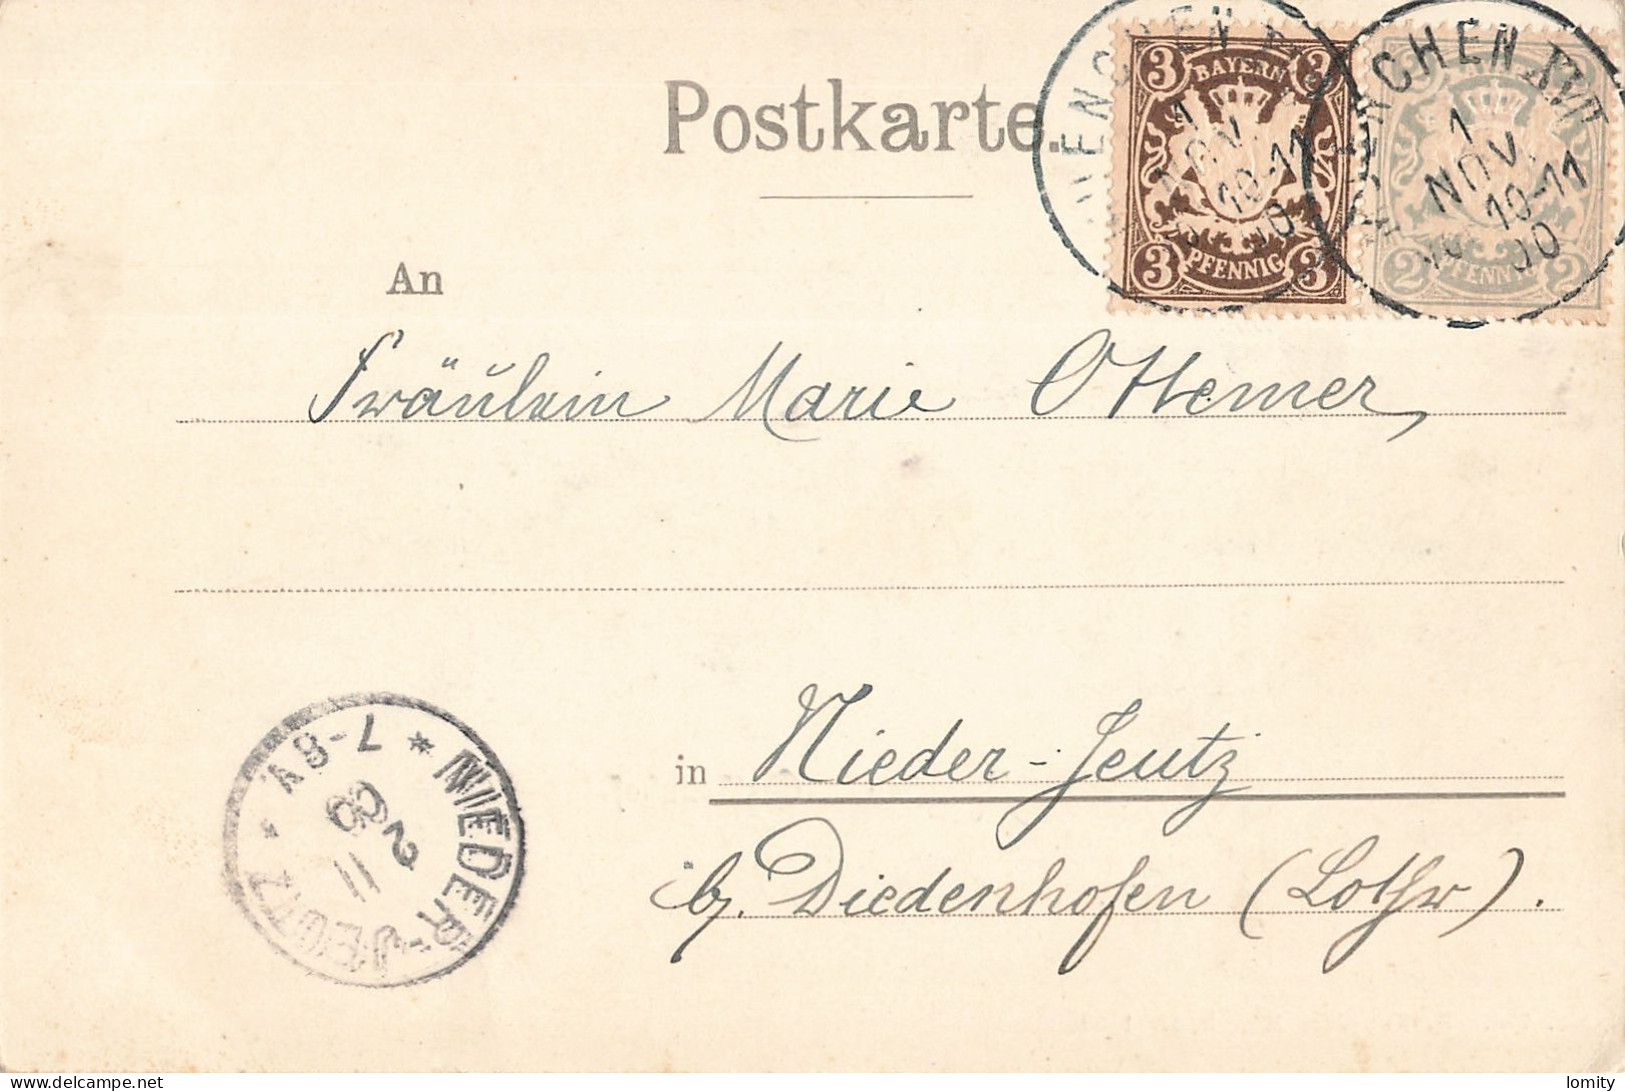 Postkarte.
MUENCHEN
1
NOV.
10-11
00
3 BAYERN 3
3 PFENNIG 3
MUENCHEN XVI
1
NOV.
10-11
00
2 PFENNIG 2
An
Fräulein Marie Ottemer,
in Nieder-Jeutz
b/. Diedenhofen (Lothr).
NIEDER-JEUTZ
* 7-8V. *
2
11
00
www.delcampe.net
lomity